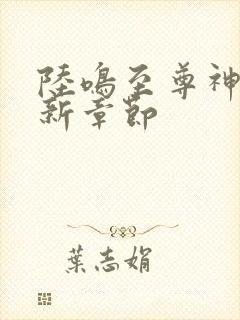 陸鳴至尊神
新章節
葉志娟